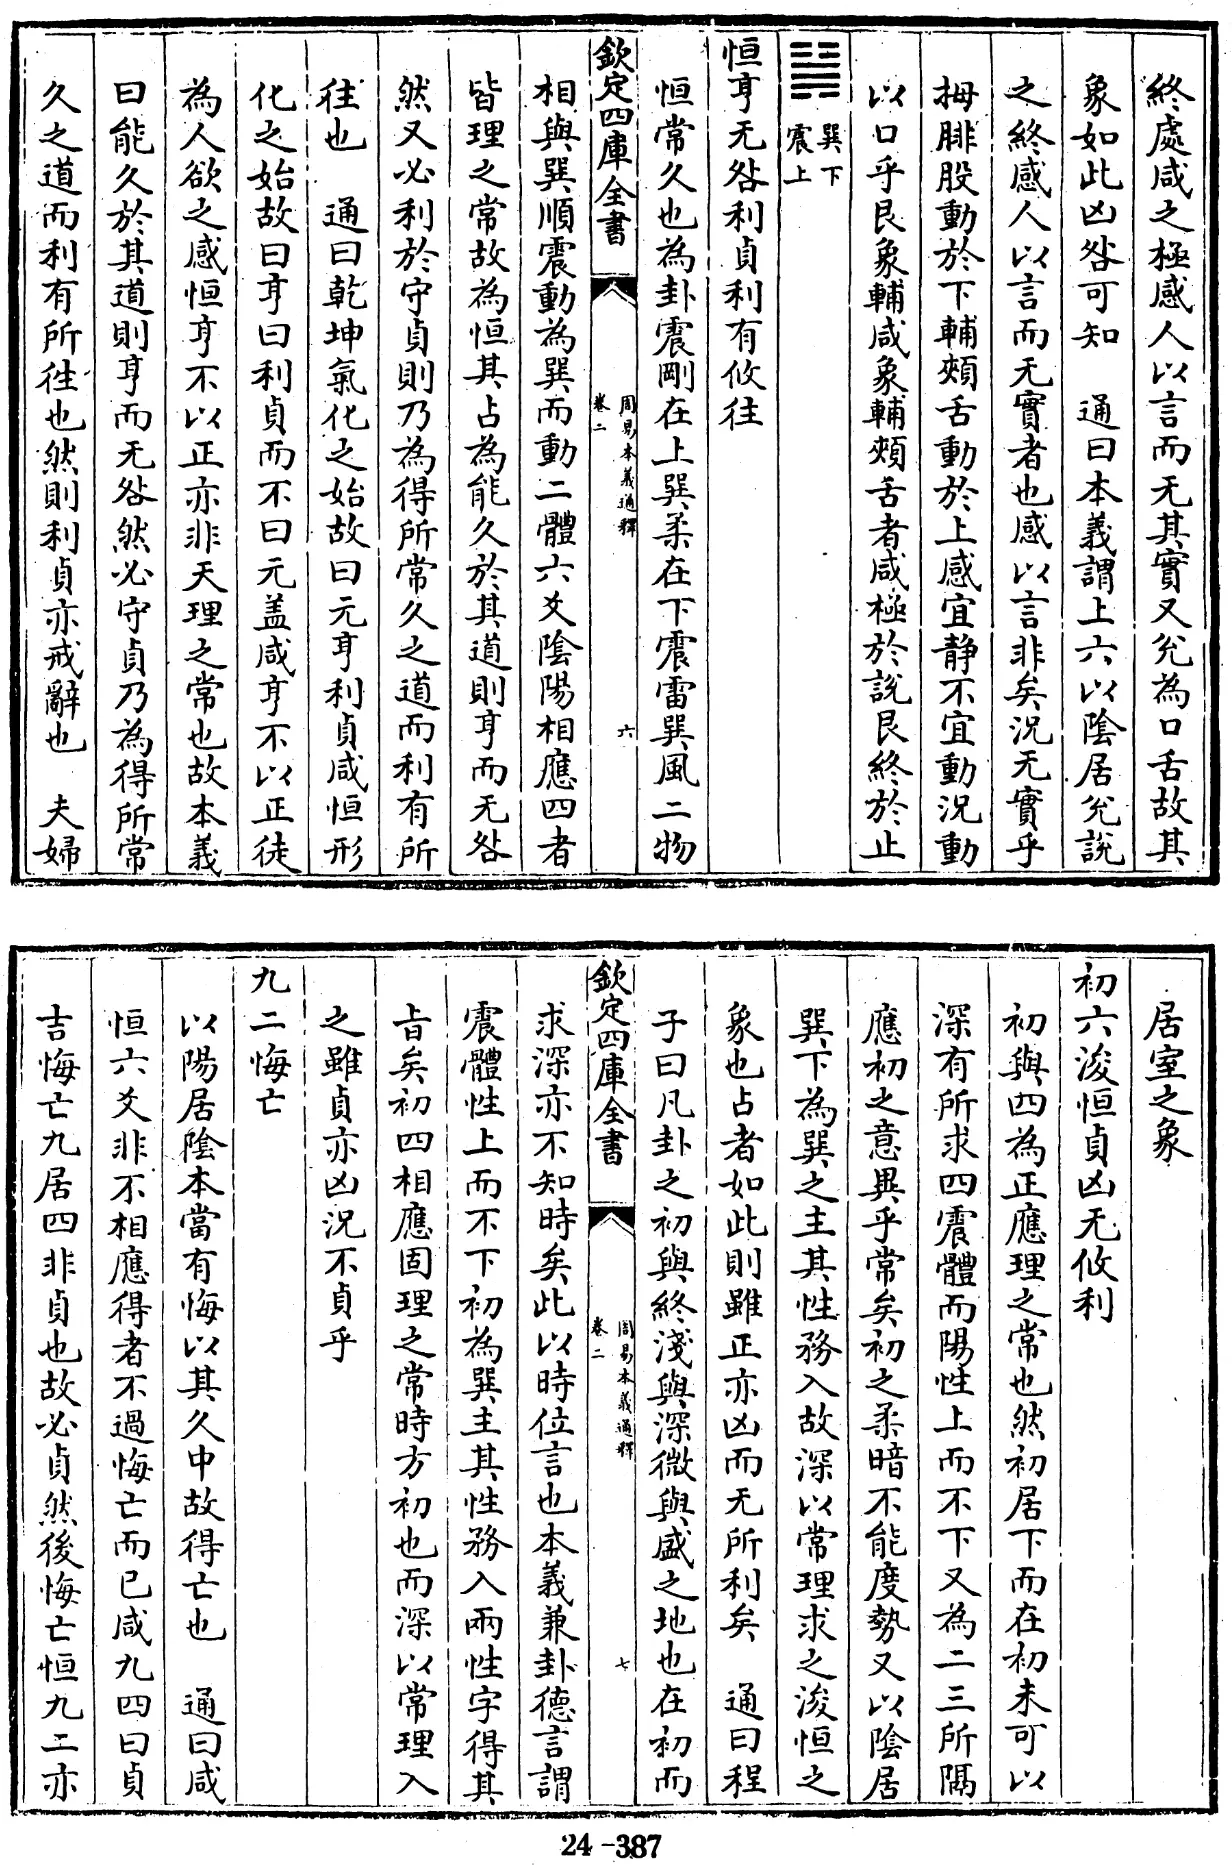 終處咸之極感人以言而无其實又兊為口舌故其
象如此凶咎可知　通曰本義謂上六以陰居兊說
之終感人以言而无實者也感以言非矣況无實乎
拇腓股動於下輔頰舌動於上感宜静不宜動況動
以口乎艮象輔咸象輔頰舌者咸極於說艮終於止
䷟巽下震上
恒亨无咎利貞利有攸往
恒常久也為卦震剛在上巽柔在下震雷巽風二物
欽定四庫全書　周易本義通釋卷二　六
相與巽順震動為巽而動二體六爻陰陽相應四者
皆理之常故為恒其占為能久於其道則亨而无咎
然又必利於守貞則乃為得所常久之道而利有所
往也　通曰乾坤氣化之始故曰元亨利貞咸恒形
化之始故曰亨曰利貞而不曰元盖咸亨不以正徒
為人欲之感恒亨不以正亦非天理之常也故本義
曰能久於其道則亨而无咎然必守貞乃為得所常
久之道而利有所徃也然則利貞亦戒辭也　夫婦
居室之象
初六浚恒貞凶无攸利
初與四為正應理之常也然初居下而在初未可以
深有所求四震體而陽性上而不下又為二三所隔
應初之意異乎常矣初之柔暗不能度勢又以陰居
巽下為巽之主其性務入故深以常理求之浚恒之
象也占者如此則雖正亦凶而无所利矣　通曰程
子曰凡卦之初與終淺與深微與盛之地也在初而
欽定四庫全書　周易本義通釋卷二　七
求深亦不知時矣此以時位言也本義兼卦德言謂
震體性上而不下初為巽主其性務入兩性字得其
旨矣初四相應固理之常時方初也而深以常理入
之雖貞亦凶況不貞乎
九二悔亡
以陽居陰本當有悔以其久中故得亡也　通曰咸
恒六爻非不相應得者不過悔亡而已咸九四曰貞
吉悔亡九居四非貞也故必貞然後悔亡恒九二亦
24-387